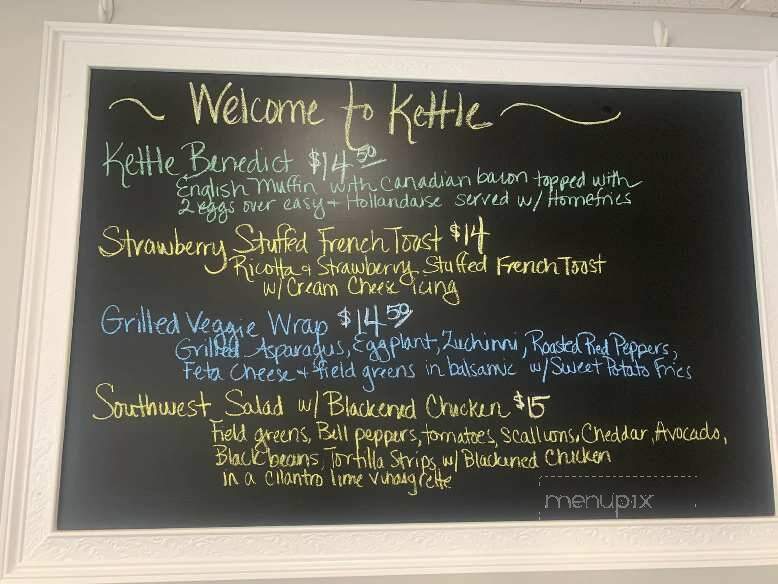 ~ Welcome to Kettle ~
Kettle Benedict $14.50
English Muffin with Canadian bacon topped with
2 eggs over easy + Hollandaise served w/ Homefries
Strawberry Stuffed French Toast $14
Ricotta & Strawberry Stuffed French Toast
w/ Cream Cheese Icing
Grilled Veggie Wrap $14.50
Grilled Asparagus, Eggplant, Zuchinni, Roasted Red Peppers,
Feta Cheese + field greens in balsamic w/ Sweet Potato Fries
Southwest Salad w/ Blackened Chicken $15
Field greens, Bell peppers, tomatoes, Scallions, Cheddar, Avocado,
Black beans, Tortilla Strips, w/ Blackened Chicken
in a cilantro lime vinaigrette
menupix